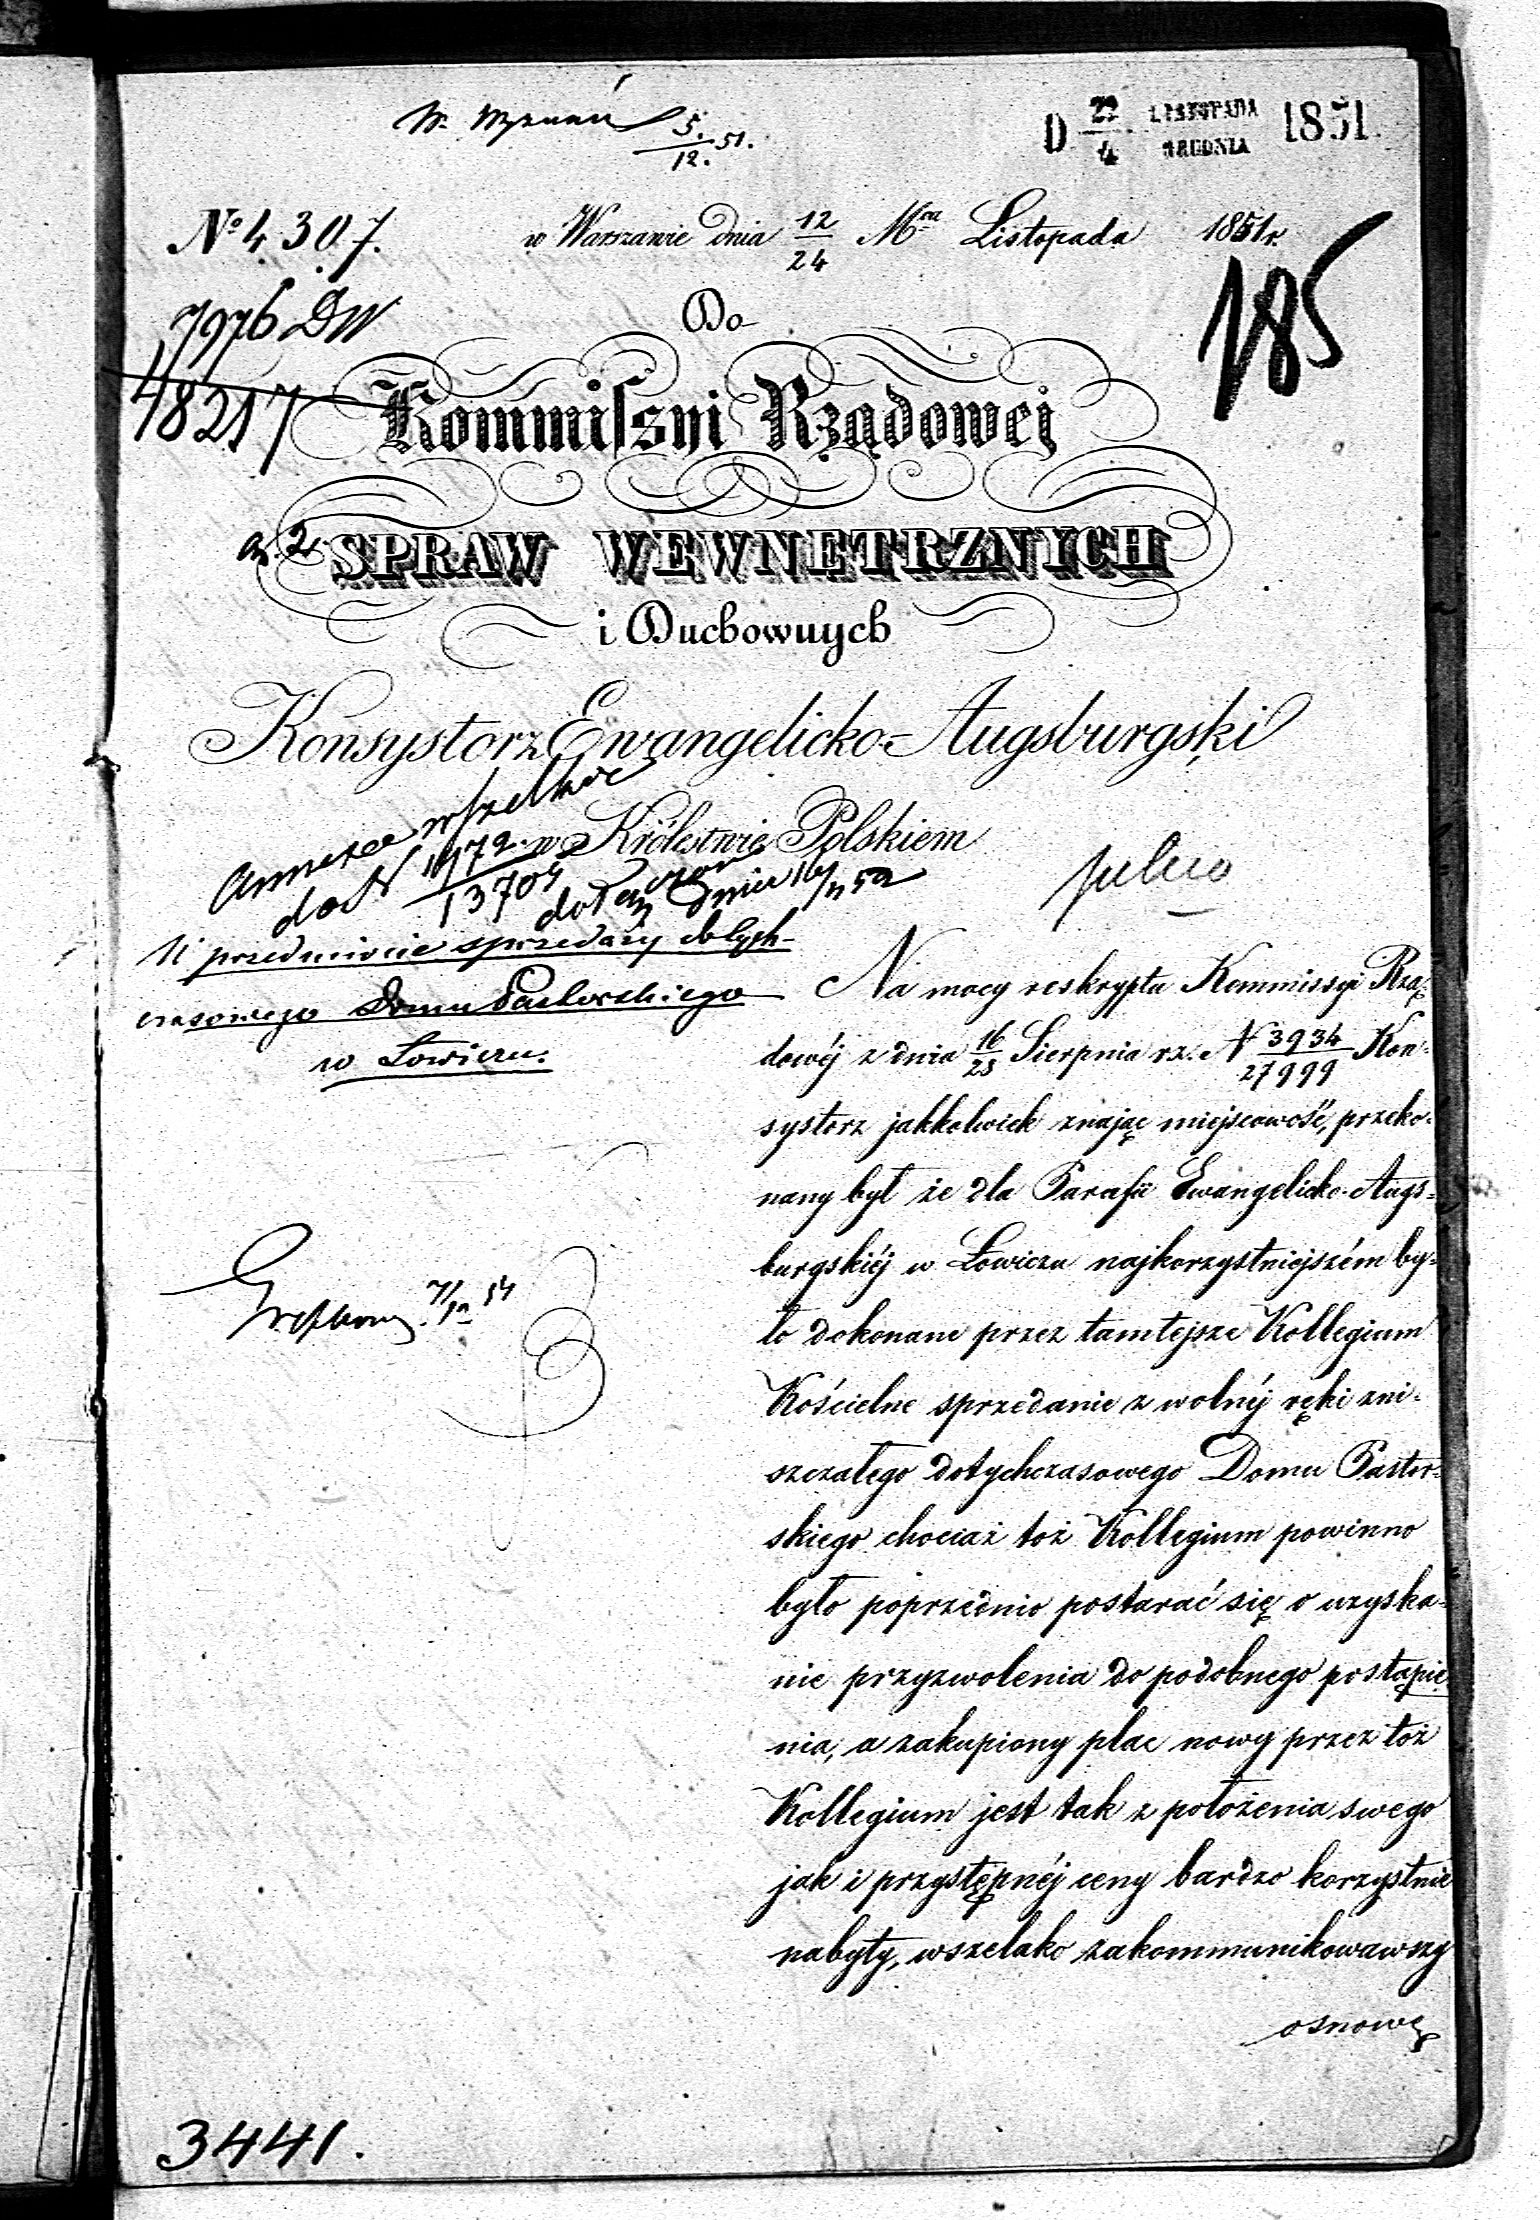 W. Wyznań 5./12. 51.
D 22/4 LISTOPADA/GRUDNIA 1851.
№ 4307.
w Warszawie dnia 12/24 Mca Listopada 1851 r.
7976 DW
48217
185
Do
Kommissyi Rządowej
SPRAW WEWNĘTRZNYCH
i Duchownych
Konsystorz Ewangelicko-Augsburgski
w Królestwie Polskiem
do N 1972/13704
W przedmiocie sprzedaży dotych-
czasowego Domu Pastorskiego
w Łowiczu.
Na mocy reskryptu Kommissyi Rzą-
dowéj z dnia 16/28 Sierpnia r.z. N 3934/27999 Kon-
systorz jakkolwiek znając miejscowość, przeko-
nany był że dla Parafii Ewangelicko-Augs-
burgskiéj w Łowiczu najkorzystniejszém by-
ło dokonane przez tamtejsze Kollegium
Kościelne sprzedanie z wolnéj ręki zni-
szczałego dotychczasowego Domu Pastor-
skiego chociaż toż Kollegium powinno
było poprzednio postarać się o uzyska-
nie przyzwolenia do podobnego postąpie-
nia, a zakupiony plac nowy przez toż
Kollegium jest tak z położenia swego
jak i przystępnéj ceny bardzo korzystnie
nabyty, wszelako zakommunikowawszy
osnowę
3441.